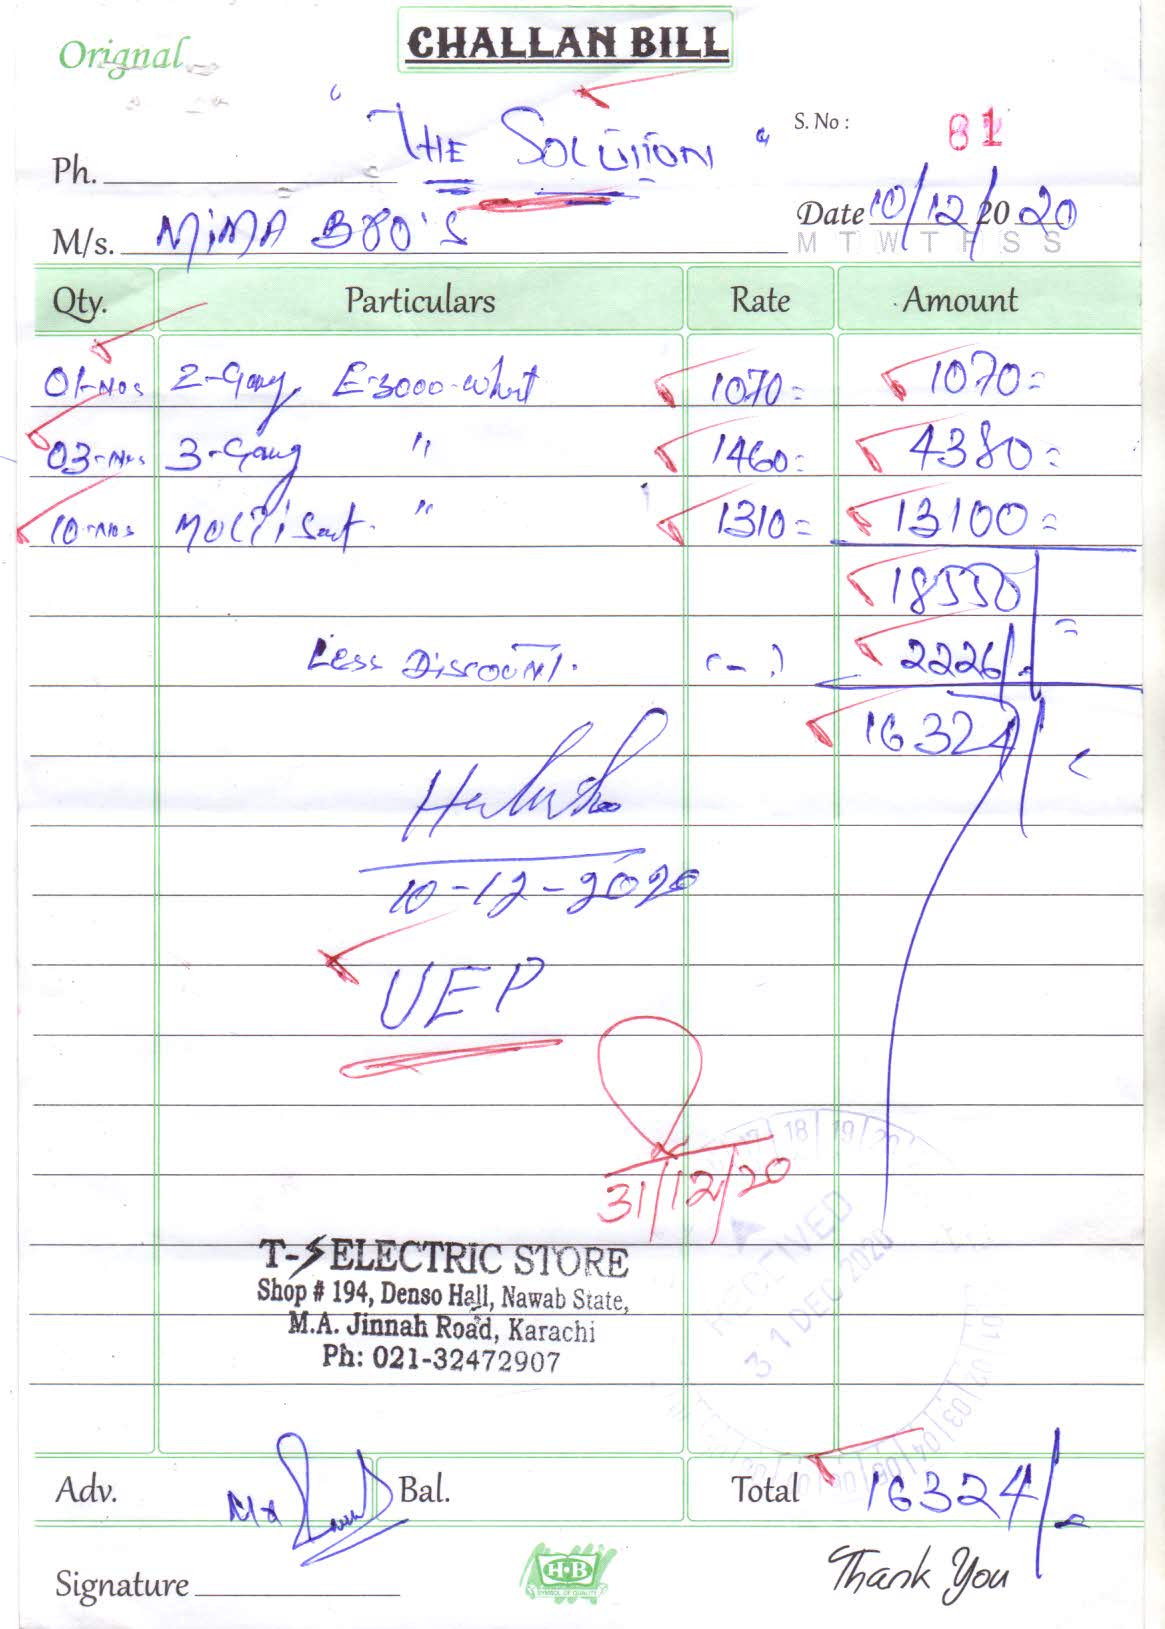 Orignal
CHALLAN BILL
" THE SOLUTION "
S. No : 61
Ph.
Date 10/12/2020 20
M/s. MIMA BRO'S
M T W T F S S
Qty. Particulars Rate Amount
01-Nos 2-Gang E-3000-whit 1070= 1070=
03-Nos 3-Gang " 1460= 4380=
10-Nos MULTi Sart. " 1310= 13100=
18550
Less DISCOUNT. (-) 2226/-
16324/
10-12-2020
UEP
31/12/20
17 18 19 20
RECEIVED
31 DEC 2020
01 02 03 04 05 06 07
T-S ELECTRIC STORE
Shop # 194, Denso Hall, Nawab State,
M.A. Jinnah Road, Karachi
Ph: 021-32472907
Adv. Bal. Total 16324/-
Signature
H·B
SYMBOL OF QUALITY
Thank You